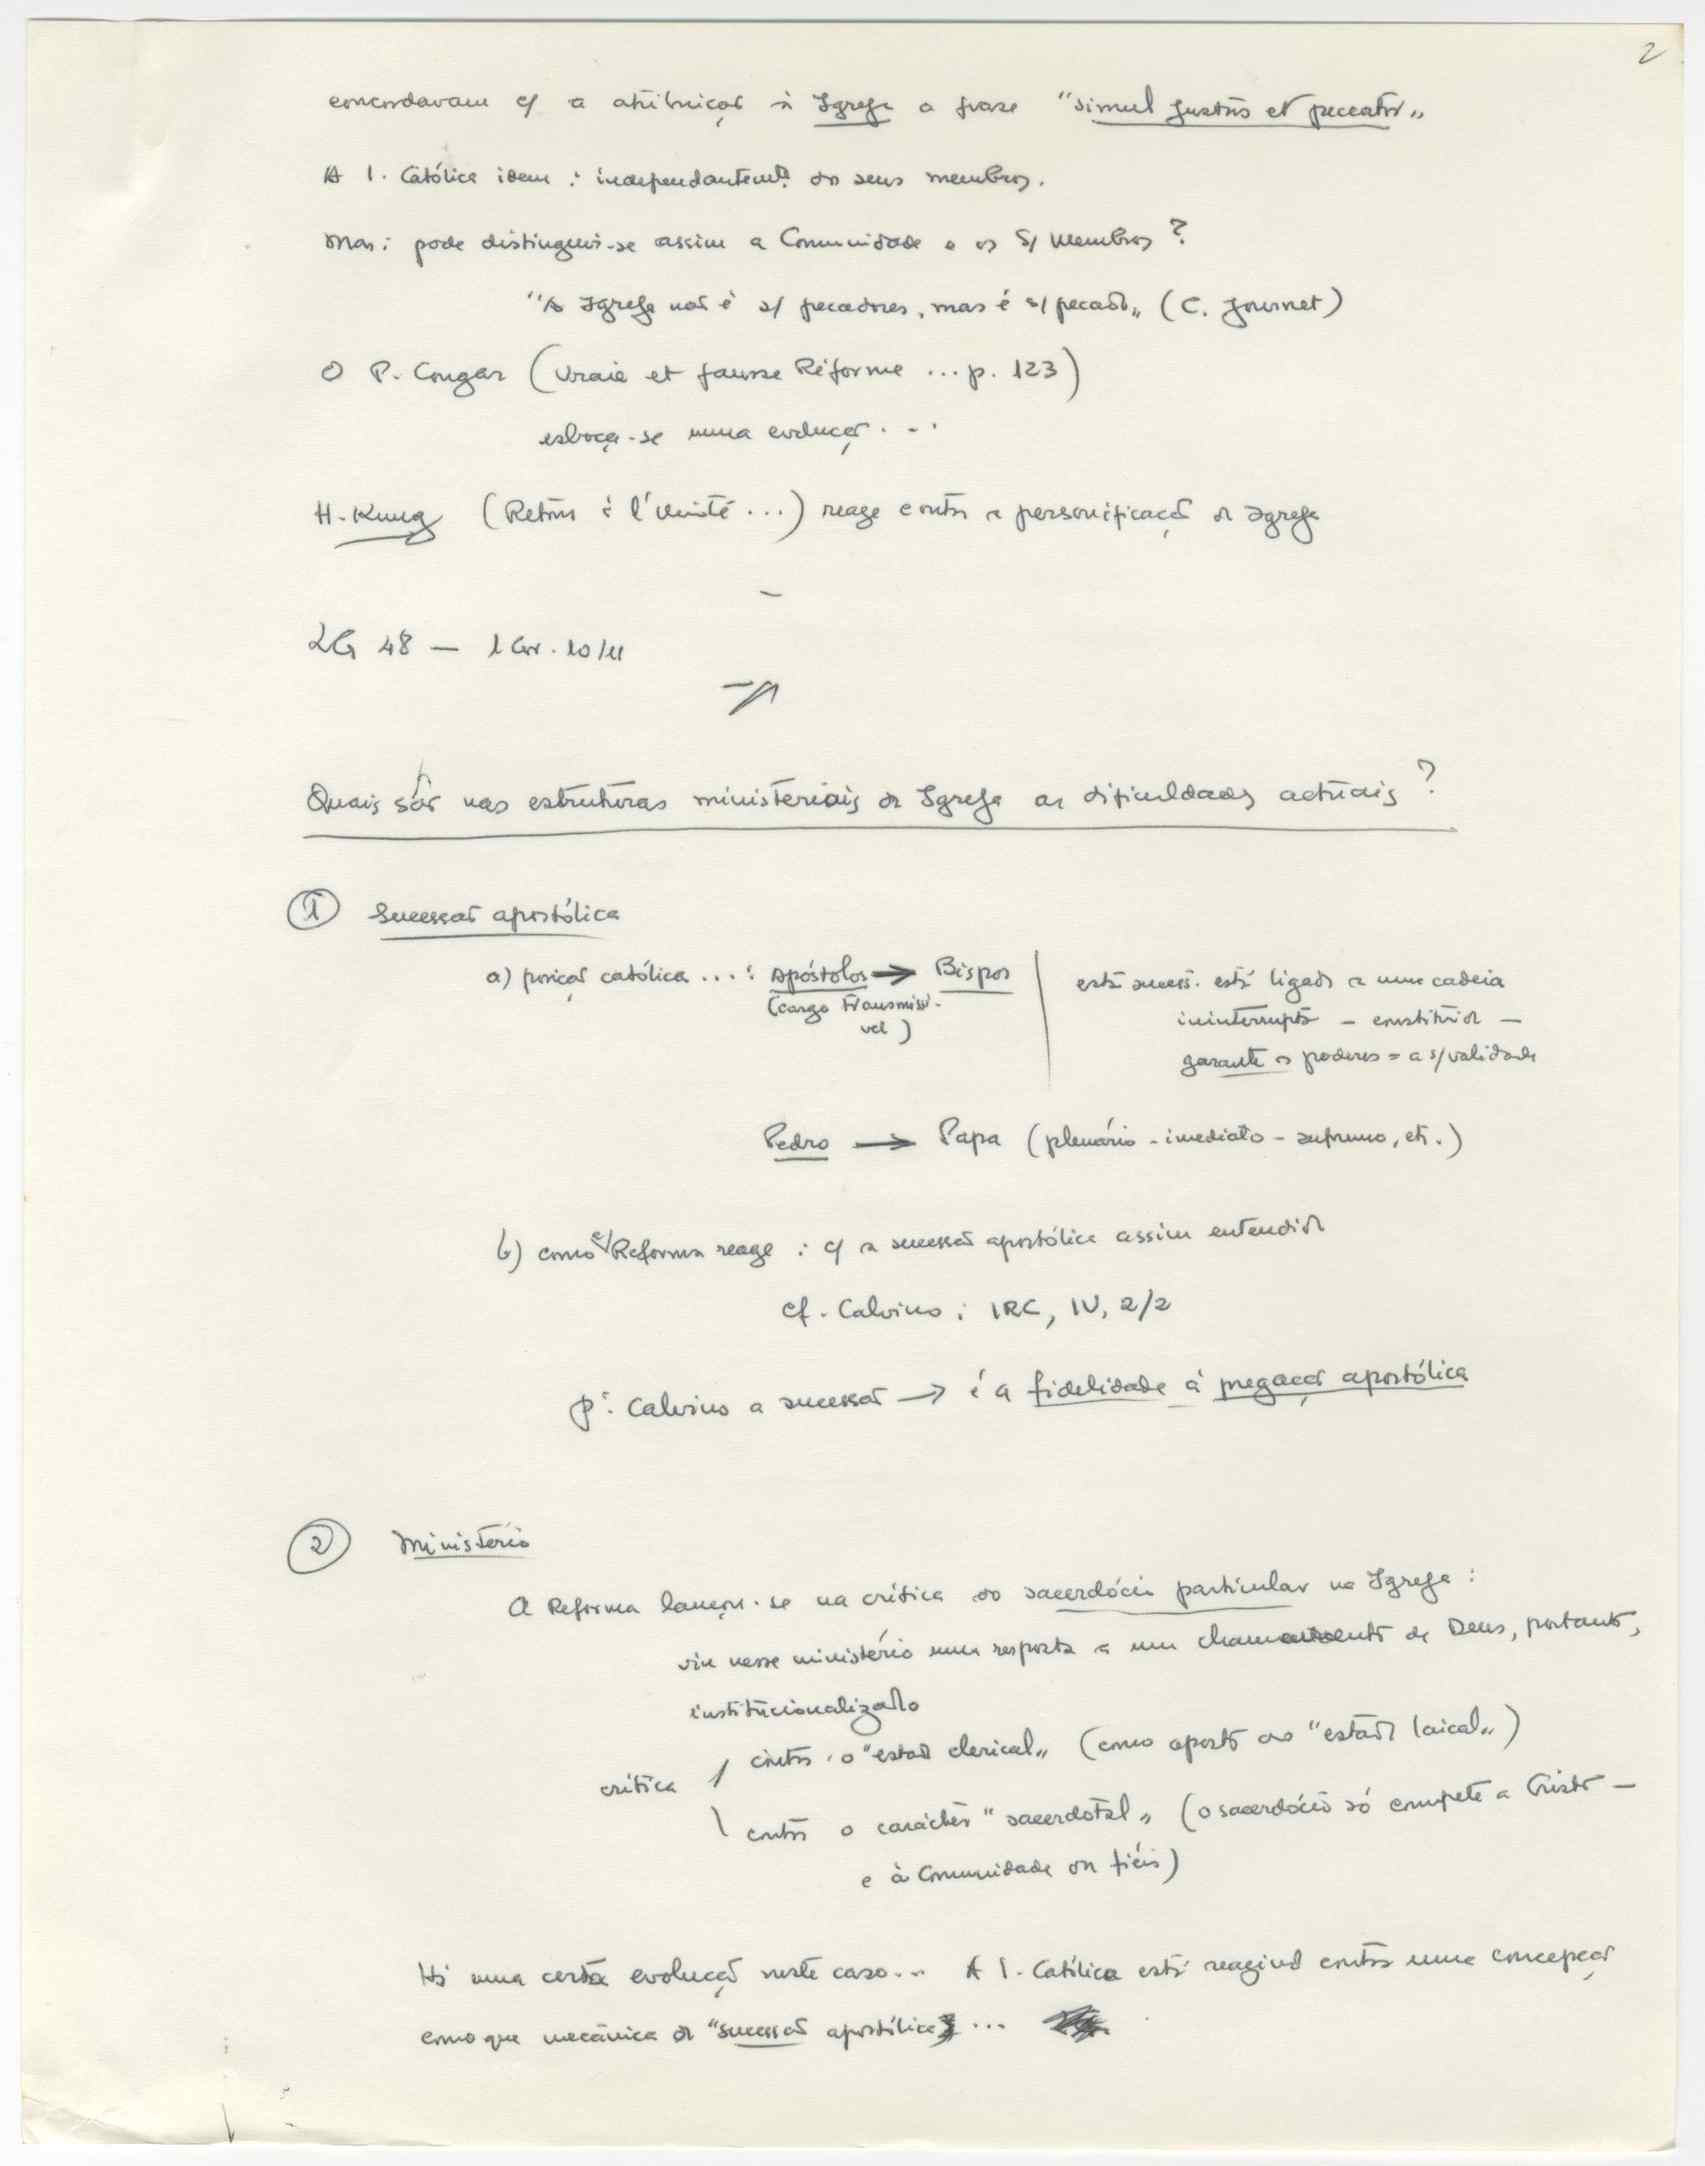 2
concordavam c/ a atribuiçaõ à Igreja a frase "simul justus et peccator"
A I. Católica idem : independantemte. dos seus membros.
Mas : pode distinguir-se assim a Comunidade e os S/ Membros ?
"A Igreja naõ é s/ pecadores, mas é s/ pecado" (C. Journet)
O P. Congar (Vraie et fausse Réforme ... p. 123)
esboça-se uma evoluçaõ . . .
H. Kung (Retour à l'Unité ...) reage contra a personificaçaõ da Igreja
–
LG 48 — 1 Cor. 10/11
Quais saõ nas estruturas ministeriais da Igreja as dificuldades actuais ?
1 Sucessaõ apostólica
a) posiçaõ católica ... : Apóstolos → Bispos
(cargo transmissí-
vel)
esta sucess. está ligada a uma cadeia
ininterrupta – constituida –
garante os poderes = a s/ validade
Pedro → Papa (plenário - imediato - supremo, etc.)
b) como a Reforma reage : c/ a sucessaõ apostólica assim entendida
cf. Calvino : IRC, IV, 2/2
pa. Calvino a sucessaõ → é a fidelidade à pregaçaõ apostólica
2 Ministério
A Reforma lançou-se na crítica do sacerdócio particular na Igreja :
viu nesse ministério uma resposta a um chamamento de Deus, portanto,
institucionalizado
crítica
contra o "estado clerical" (como oposto ao "estado laical")
contra o carácter "sacerdotal" (o sacerdócio só compete a Cristo –
e à Comunidade dos fiéis)
Há uma certa evoluçaõ neste caso... A I. Católica está reagindo contra uma concepçaõ
como que mecânica da "sucessaõ apostólica" ...